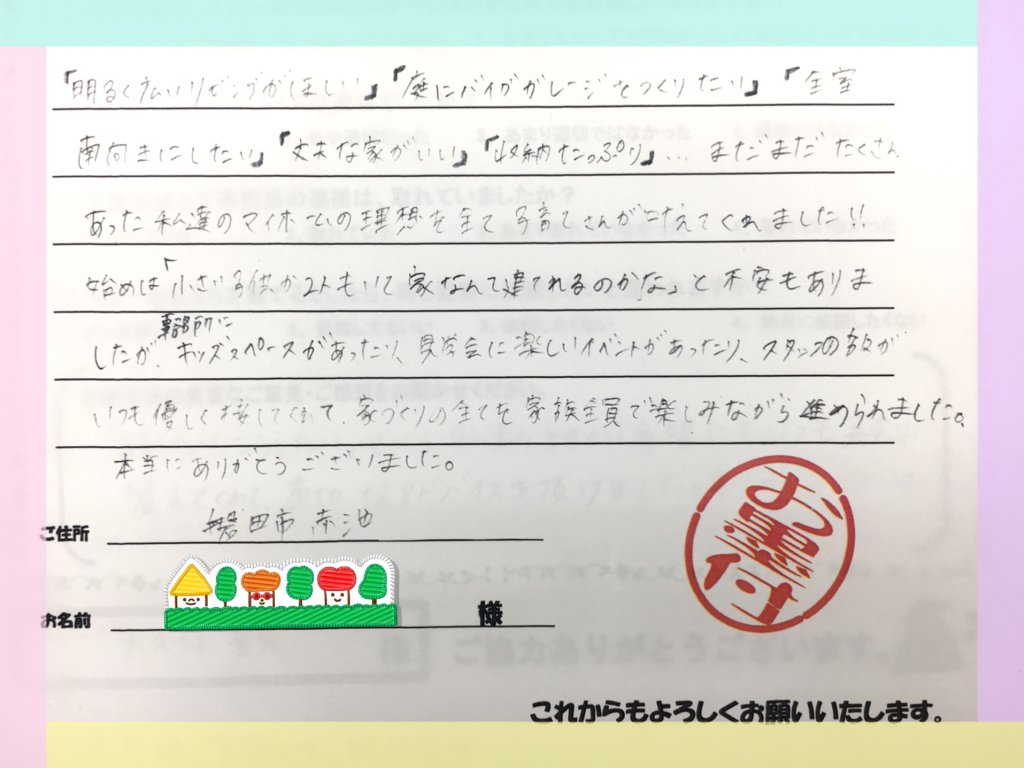 「明るく広いリビングがほしい」「庭にバイクガレージをつくりたい」「全室
南向きにしたい」「丈夫な家がいい」「収納たっぷり」… まだまだ たくさん
あった 私達のマイホームの理想を全て 子育てさんが叶えてくれました!!
始めは「小さい子供が2人もいて家なんて建てれるのかな」と不安もありま
したが、事務所にキッズスペースがあったり、見学会に楽しいイベントがあったり、スタッフの方が
いつも優しく接してくれて、家づくりの全てを家族全員で楽しみながら進められました。
本当にありがとうございました。
ご住所 磐田市 赤池
お名前 様
お墨付
これからもよろしくお願いいたします。